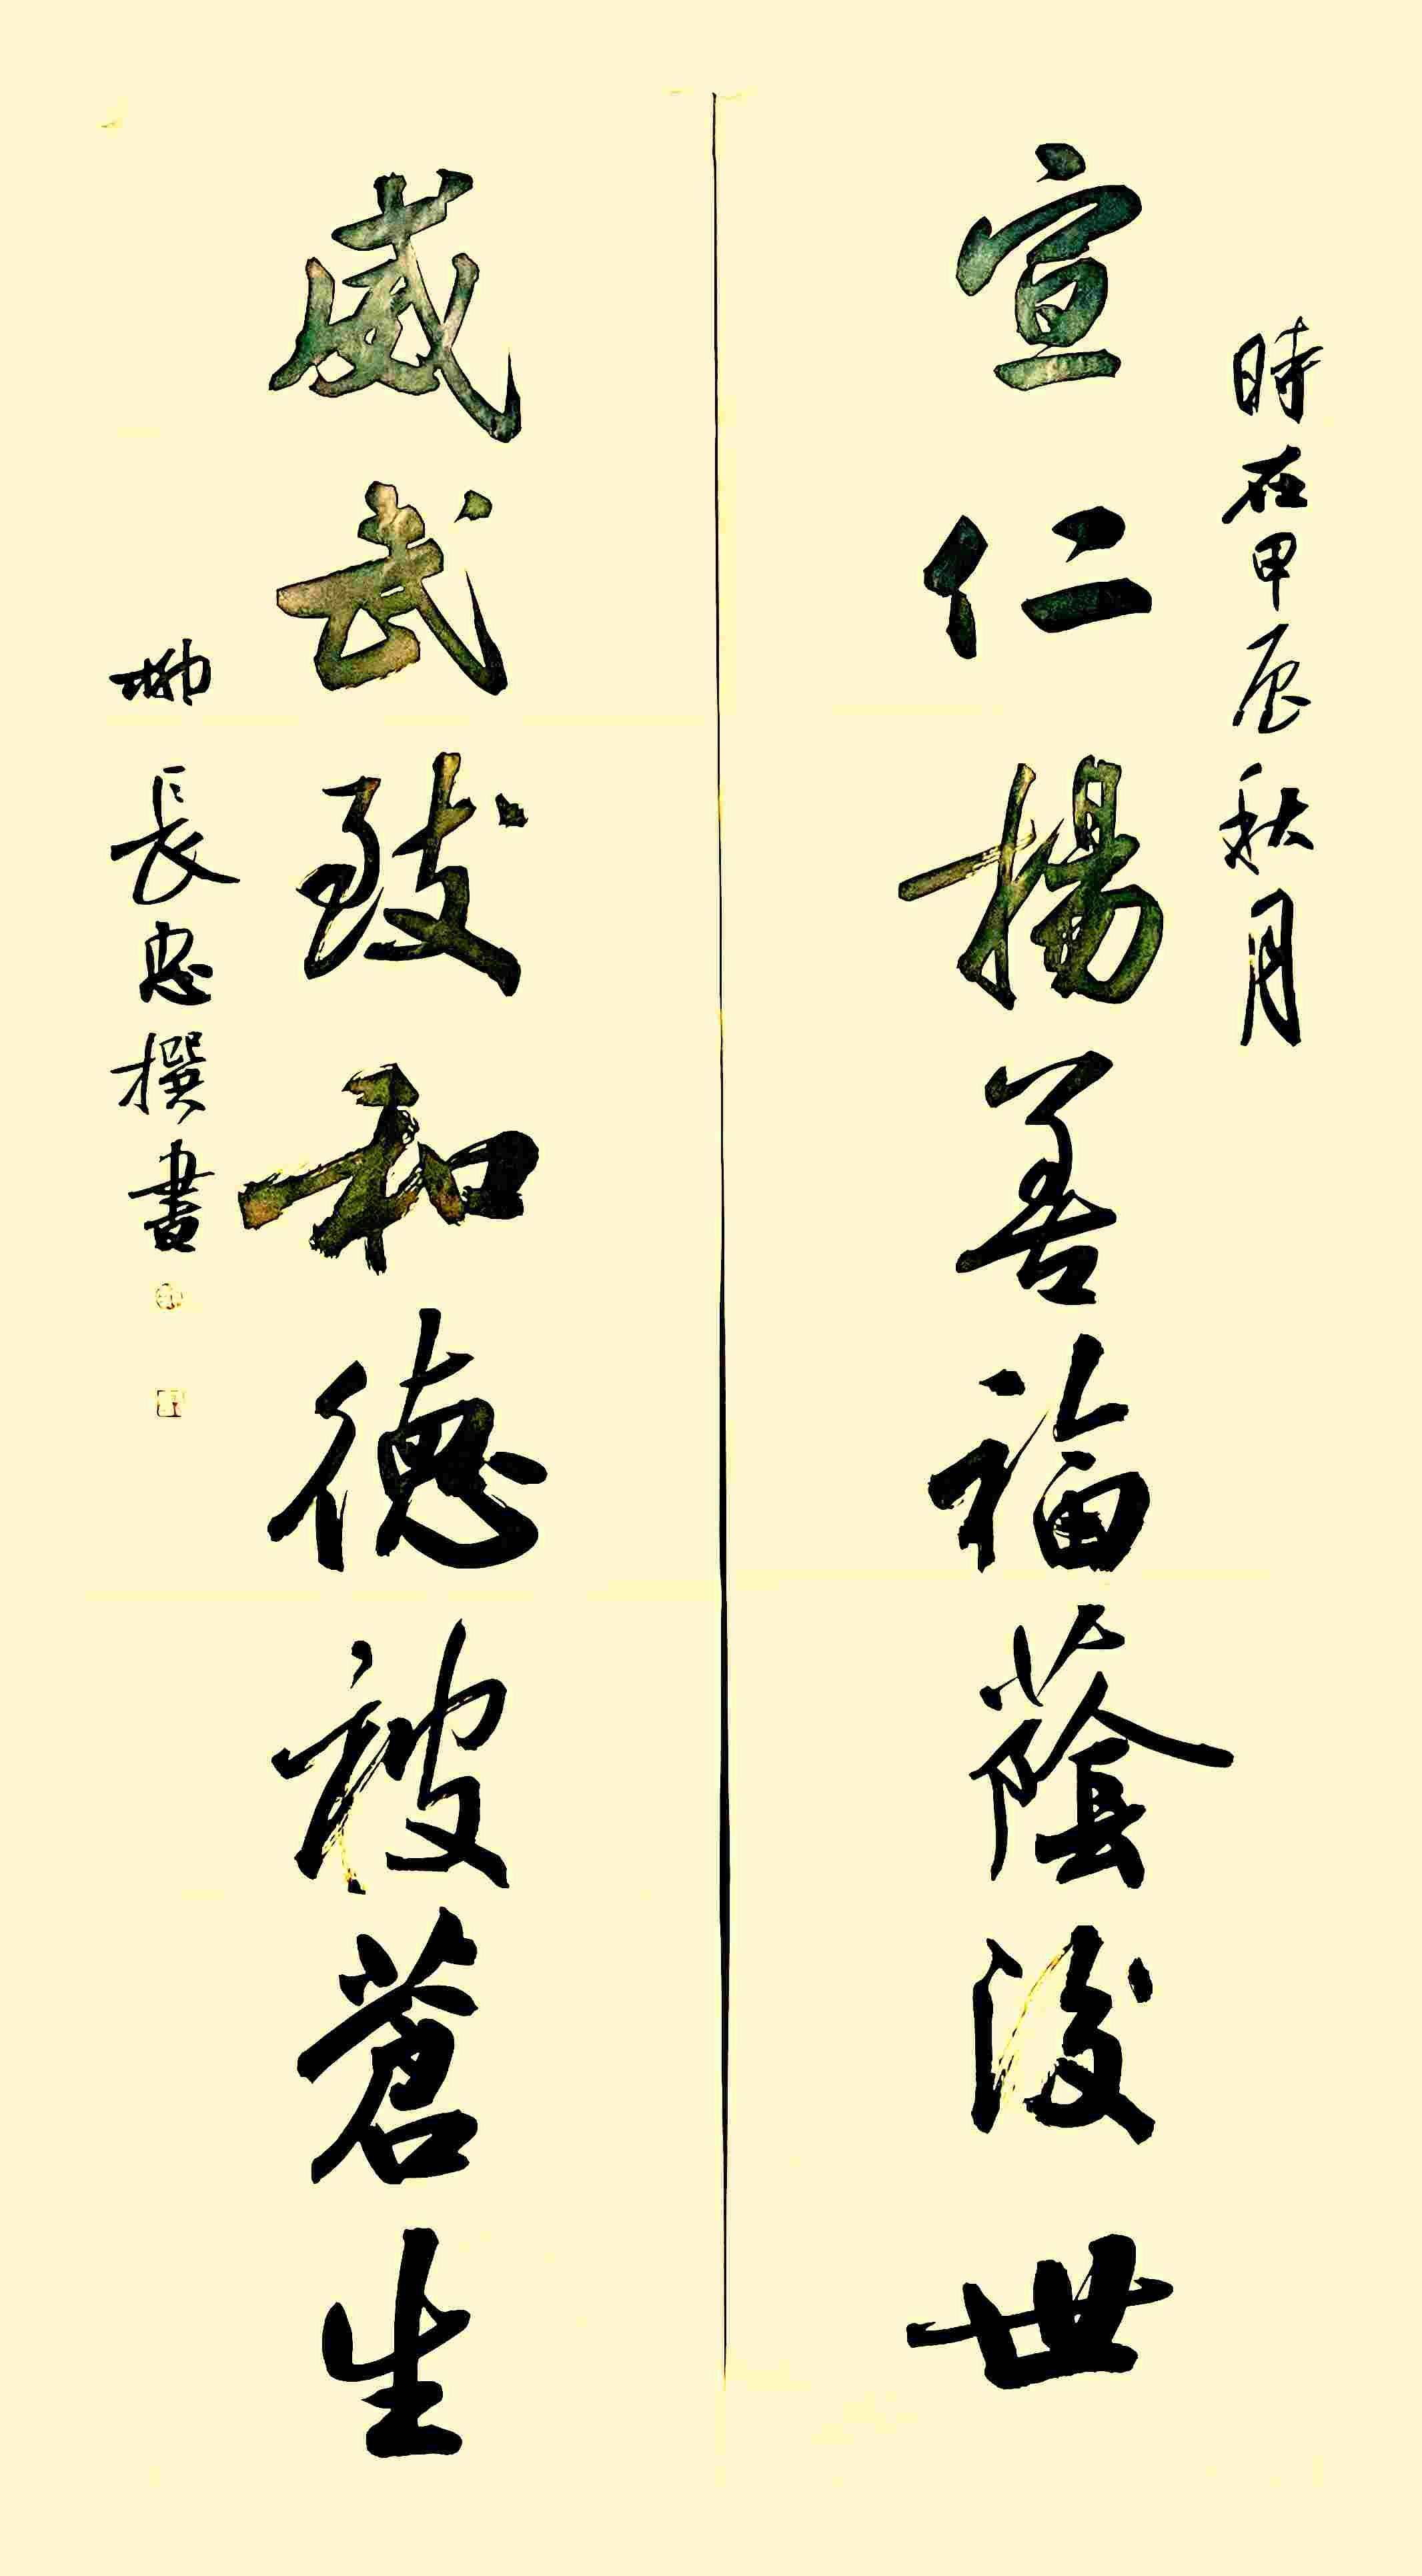 時在甲辰秋月
宣仁揚善福蔭後世
威武致和德被蒼生
柳長忠撰書